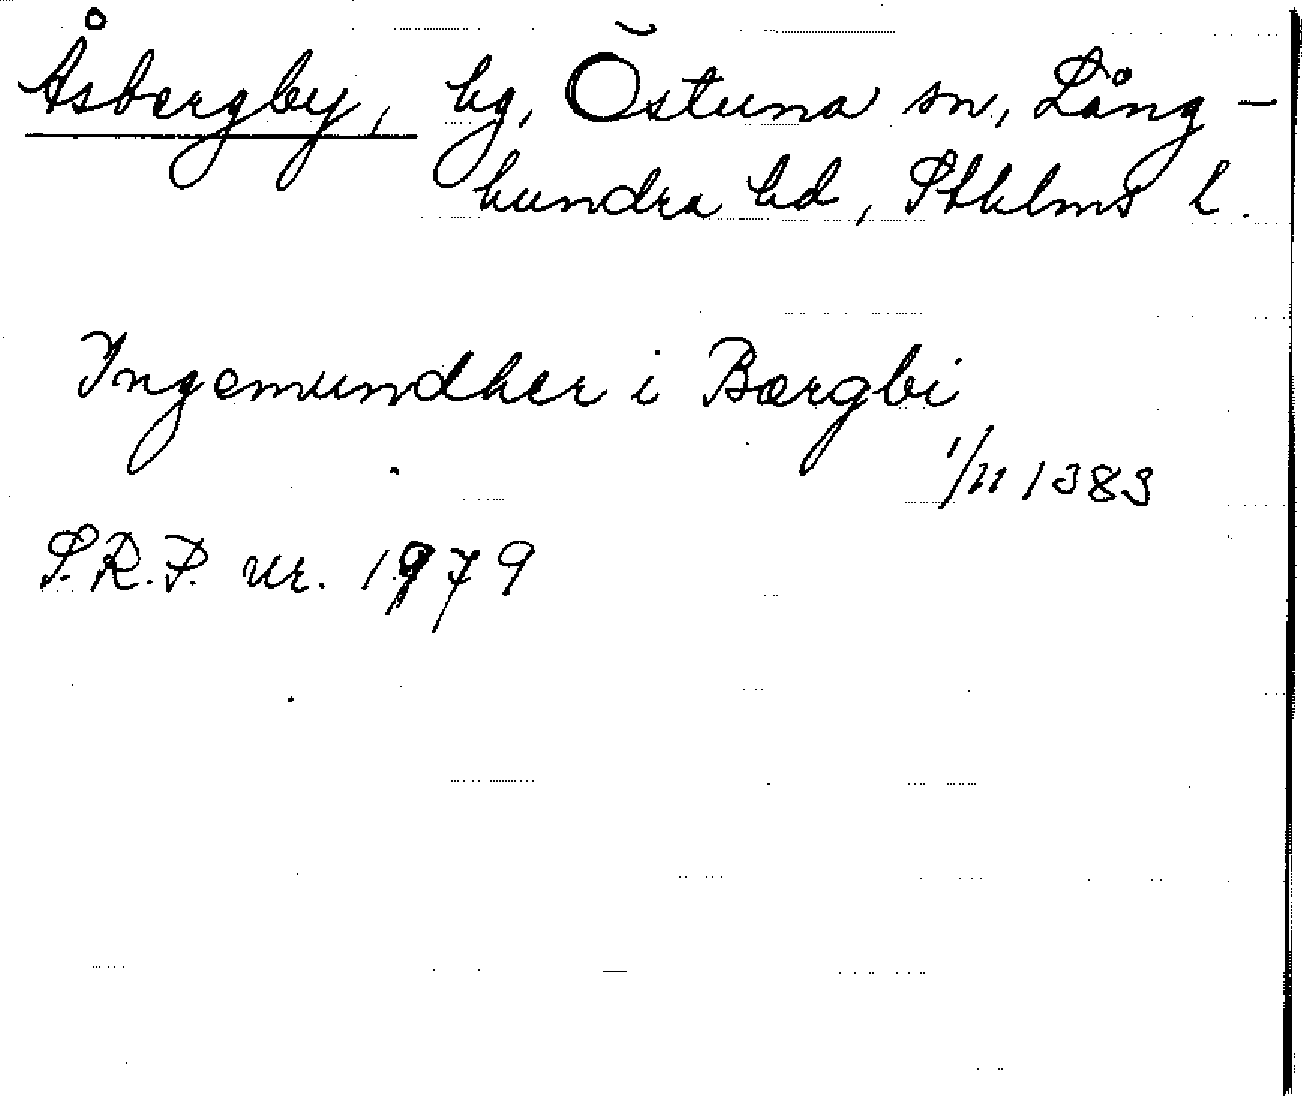 Åsbergby, by, Östuna sn, Lång-
hundra hd, Sthlms l.
Ingemundher i Bærgbi
1/11 1383
S.R.P. nr. 1979